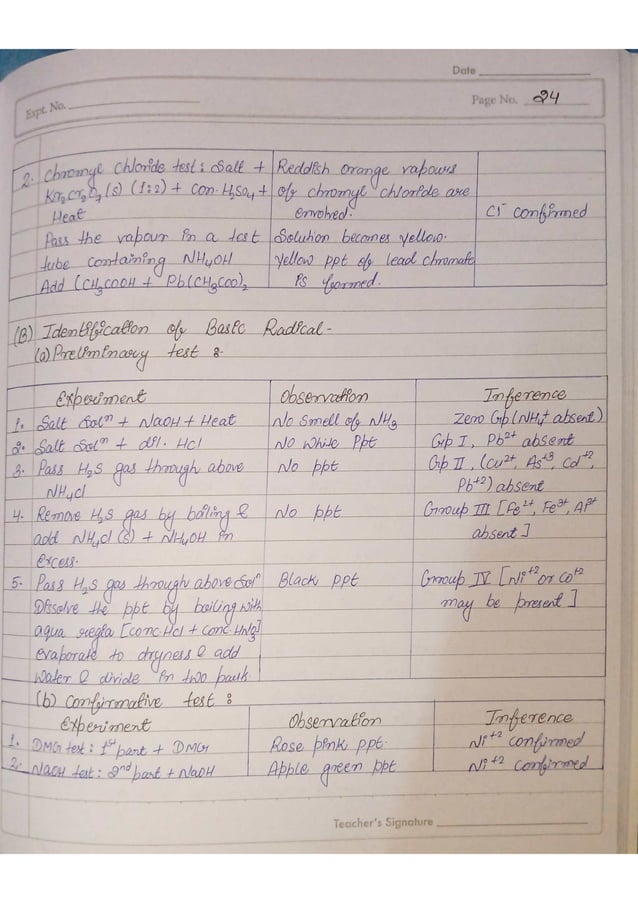 Date
Expt. No.
Page No. 24
2. Chromyl Chloride test: Salt + Reddish orange vapours
Kr₂Cr₂O₇(s) (1:2) + Con. H₂SO₄ + of chromyl chloride are
Heat evolved. Cl⁻ confirmed
Pass the vapour in a test Solution becomes yellow.
tube containing NH₄OH Yellow ppt of lead chromate
Add (CH₃COOH + Pb(CH₃COO)₂ is formed.
(B) Identification of Basic Radical -
(a) Preliminary test :-
Experiment Observation Inference
1. Salt Solⁿ + NaOH + Heat No Smell of NH₃ Zero Grp (NH₄⁺ absent)
2. Salt Solⁿ + dil. HCl No White Ppt Grp I, Pb²⁺ absent
3. Pass H₂S gas through above No ppt Grp II, (Cu²⁺, As⁺³, Cd⁺²,
NH₄Cl Pb⁺²) absent
4. Remove H₂S gas by boiling & No ppt Group III [Fe²⁺, Fe³⁺, Al³⁺
add NH₄Cl (s) + NH₄OH in absent]
excess.
5. Pass H₂S gas through above Solⁿ Black ppt Group IV [Ni⁺² or Co⁺²
Dissolve the ppt by boiling with may be present]
aqua regia [conc. HCl + conc. HNO₃]
evaporate to dryness & add
water & divide in two parts
(b) Confirmative test :
Experiment Observation Inference
1. DMG test: 1ˢᵗ part + DMG Rose pink ppt. Ni⁺² confirmed
2. NaOH test: 2ⁿᵈ part + NaOH Apple green ppt Ni⁺² confirmed
Teacher's Signature